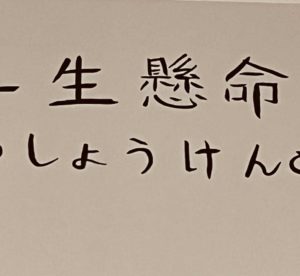 一生懸命
しょうけん